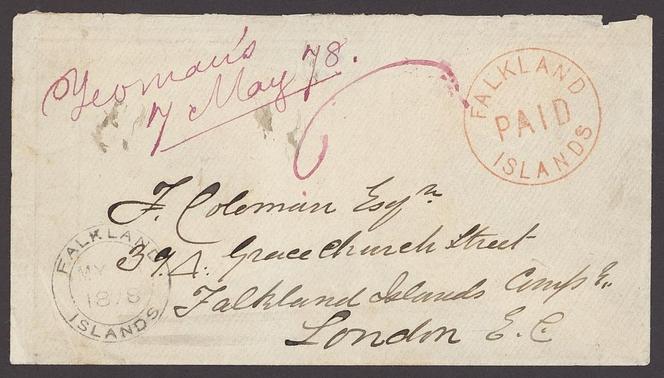 Yeoman's
7 May 78.
FALKLAND
PAID
ISLANDS
F. Coleman Esqr
39A. Gracechurch Street
Falkland Islands Comp
London E.C
FALKLAND
MY
1878
ISLANDS